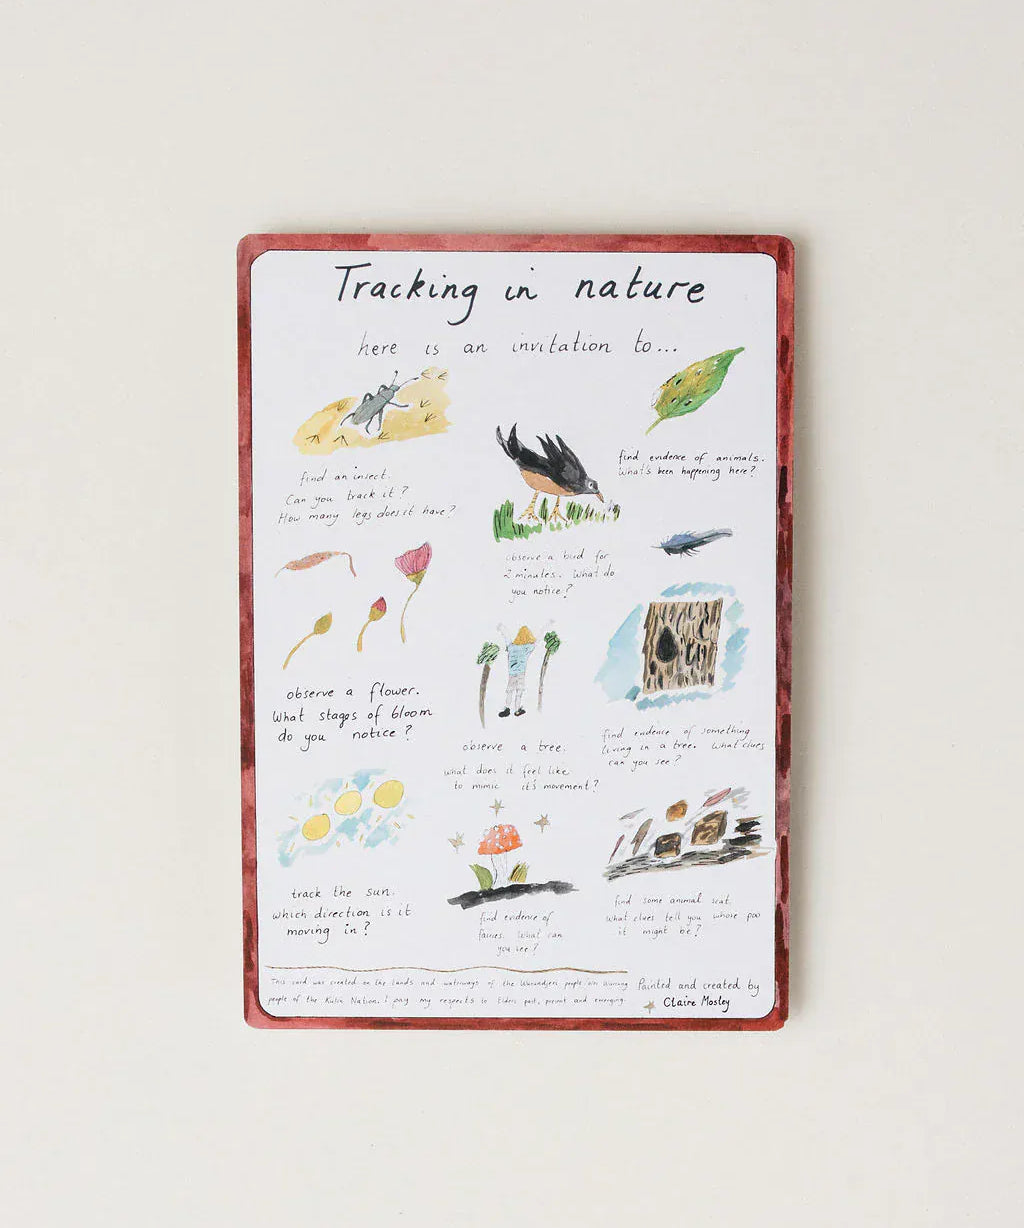 Tracking in nature
here is an invitation to...
find an insect.
Can you track it?
How many legs does it have?
observe a bird for
2 minutes. What do
you notice?
find evidence of animals.
What's been happening here?
observe a flower.
What stages of bloom
do you notice?
observe a tree.
what does it feel like
to mimic it's movement?
find evidence of something
living in a tree. What clues
can you see?
track the sun.
which direction is it
moving in?
find evidence of
fairies. What can
you see?
find some animal scat.
What clues tell you whose poo
it might be?
This card was created on the lands and waterways of the Wurundjeri people, Woi Wurrung
people of the Kulin Nation. I pay my respects to Elders past, present and emerging.
Painted and created by
Claire Mosley